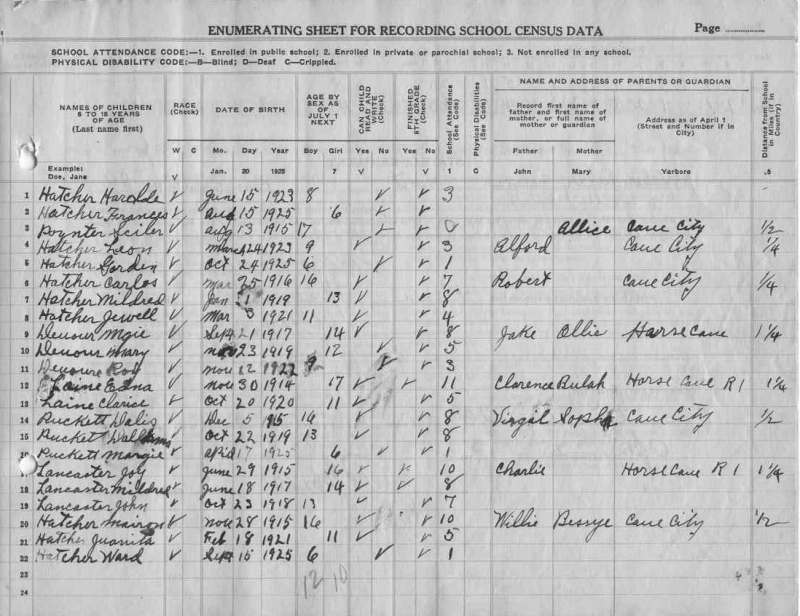 ENUMERATING SHEET FOR RECORDING SCHOOL CENSUS DATA Page
SCHOOL ATTENDANCE CODE:—1. Enrolled in public school; 2. Enrolled in private or parochial school; 3. Not enrolled in any school.
PHYSICAL DISABILITY CODE:—B—Blind; D—Deaf C—Crippled.
NAMES OF CHILDREN 6 TO 18 YEARS OF AGE (Last name first) RACE (Check) DATE OF BIRTH AGE BY SEX AS OF JULY 1 NEXT CAN CHILD READ AND WRITE (Check) FINISHED 8TH GRADE (Check) School Attendance (See Code) Physical Disabilities (See Code) NAME AND ADDRESS OF PARENTS OR GUARDIAN Distance from School in Miles (if in Country)
Record first name of father and first name of mother, or full name of mother or guardian Address as of April 1 (Street and Number if in City)
W C Mo. Day Year Boy Girl Yes No Yes No Father Mother
Example: Doe, Jane V Jan. 20 1925 7 V V 1 C John Mary Yarboro .5
1 Hatcher Harolde V June 15 1923 8 V V 3
2 Hatcher Frances V Aug 15 1925 6 V V 1
3 Poynter Seiler V Aug 13 1915 17 V V Allice Cave City 1/2
4 Hatcher Leon V March 24 1923 9 V V 3 Alford Cave City 1/4
5 Hatcher Gorden V Oct 24 1925 6 V V 1
6 Hatcher Carlos V Mar 25 1916 16 V V 7 Robert Cave City 1/4
7 Hatcher Mildred V Jan 31 1919 13 V V 8
8 Hatcher Jewell V Mar 3 1921 11 V V 4
9 Devour Mgie V Sept 21 1917 14 V V 8 Jake Ollie Horse Cave 1 1/4
10 Devour Mary V Nov 23 1919 12 V V 5
11 Devoure Roy V Nov 12 1922 9 V V 3
12 Laine Edna V Nov 30 1914 17 V V 11 Clarence Bulah Horse Cave R 1 1 1/4
13 Laine Clarice V Oct 20 1920 11 V V 5
14 Puckett Dalis V Dec 5 1915 16 V V 8 Virgil Sopha Cave City 1/2
15 Puckett V Oct 22 1919 13 V V 8
16 Puckett Margie V April 17 1925 6 V V 1
17 Lancaster Joy V June 29 1915 16 V V 10 Charlie Horse Cave R 1 1 1/4
18 Lancaster Mildred V June 18 1917 14 V V 8
19 Lancaster John V Oct 23 1918 13 V V 7
20 Hatcher Mairon V Nov 28 1915 16 V V 10 Willie Bessye Cave City 1/2
21 Hatcher Juanita V Feb 18 1921 11 V V 5
22 Hatcher Ward V Sept 15 1925 6 V V 1
23 12 10
24